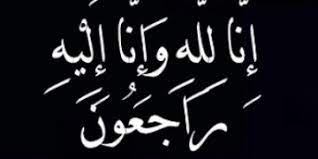 إِنَّا لِلّهِ وَإِنَّا إِلَيْهِ
رَاجَعُونَ